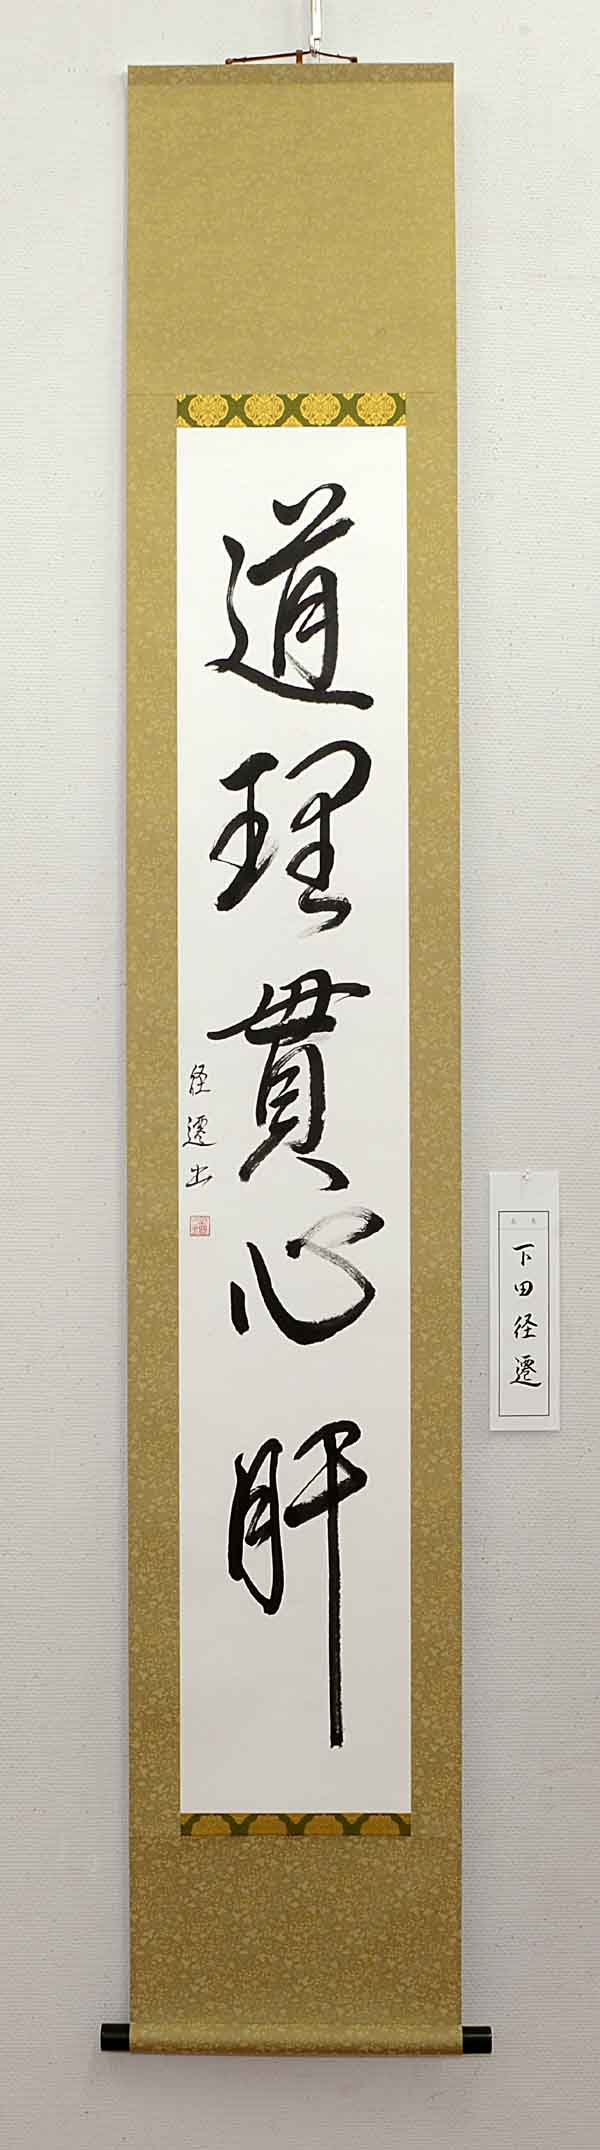 道理貫心肝
径遷書
下田径遷